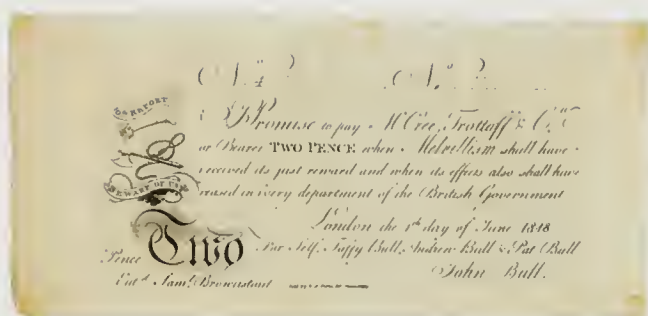 No. ? No. ?
10th REPORT
I Promise to pay Mr. Cree, Trottoff & Co.
or Bearer TWO PENCE when Melvilliism shall have
received its just reward and when its effects also shall have
ceased in every department of the British Government
BEWARE OF US
London the 1st day of June 18
Pence Two For Self, Taffy Bull, Andrew Bull & Pat Bull
John Bull.
Ent.d Saml. Brownstout